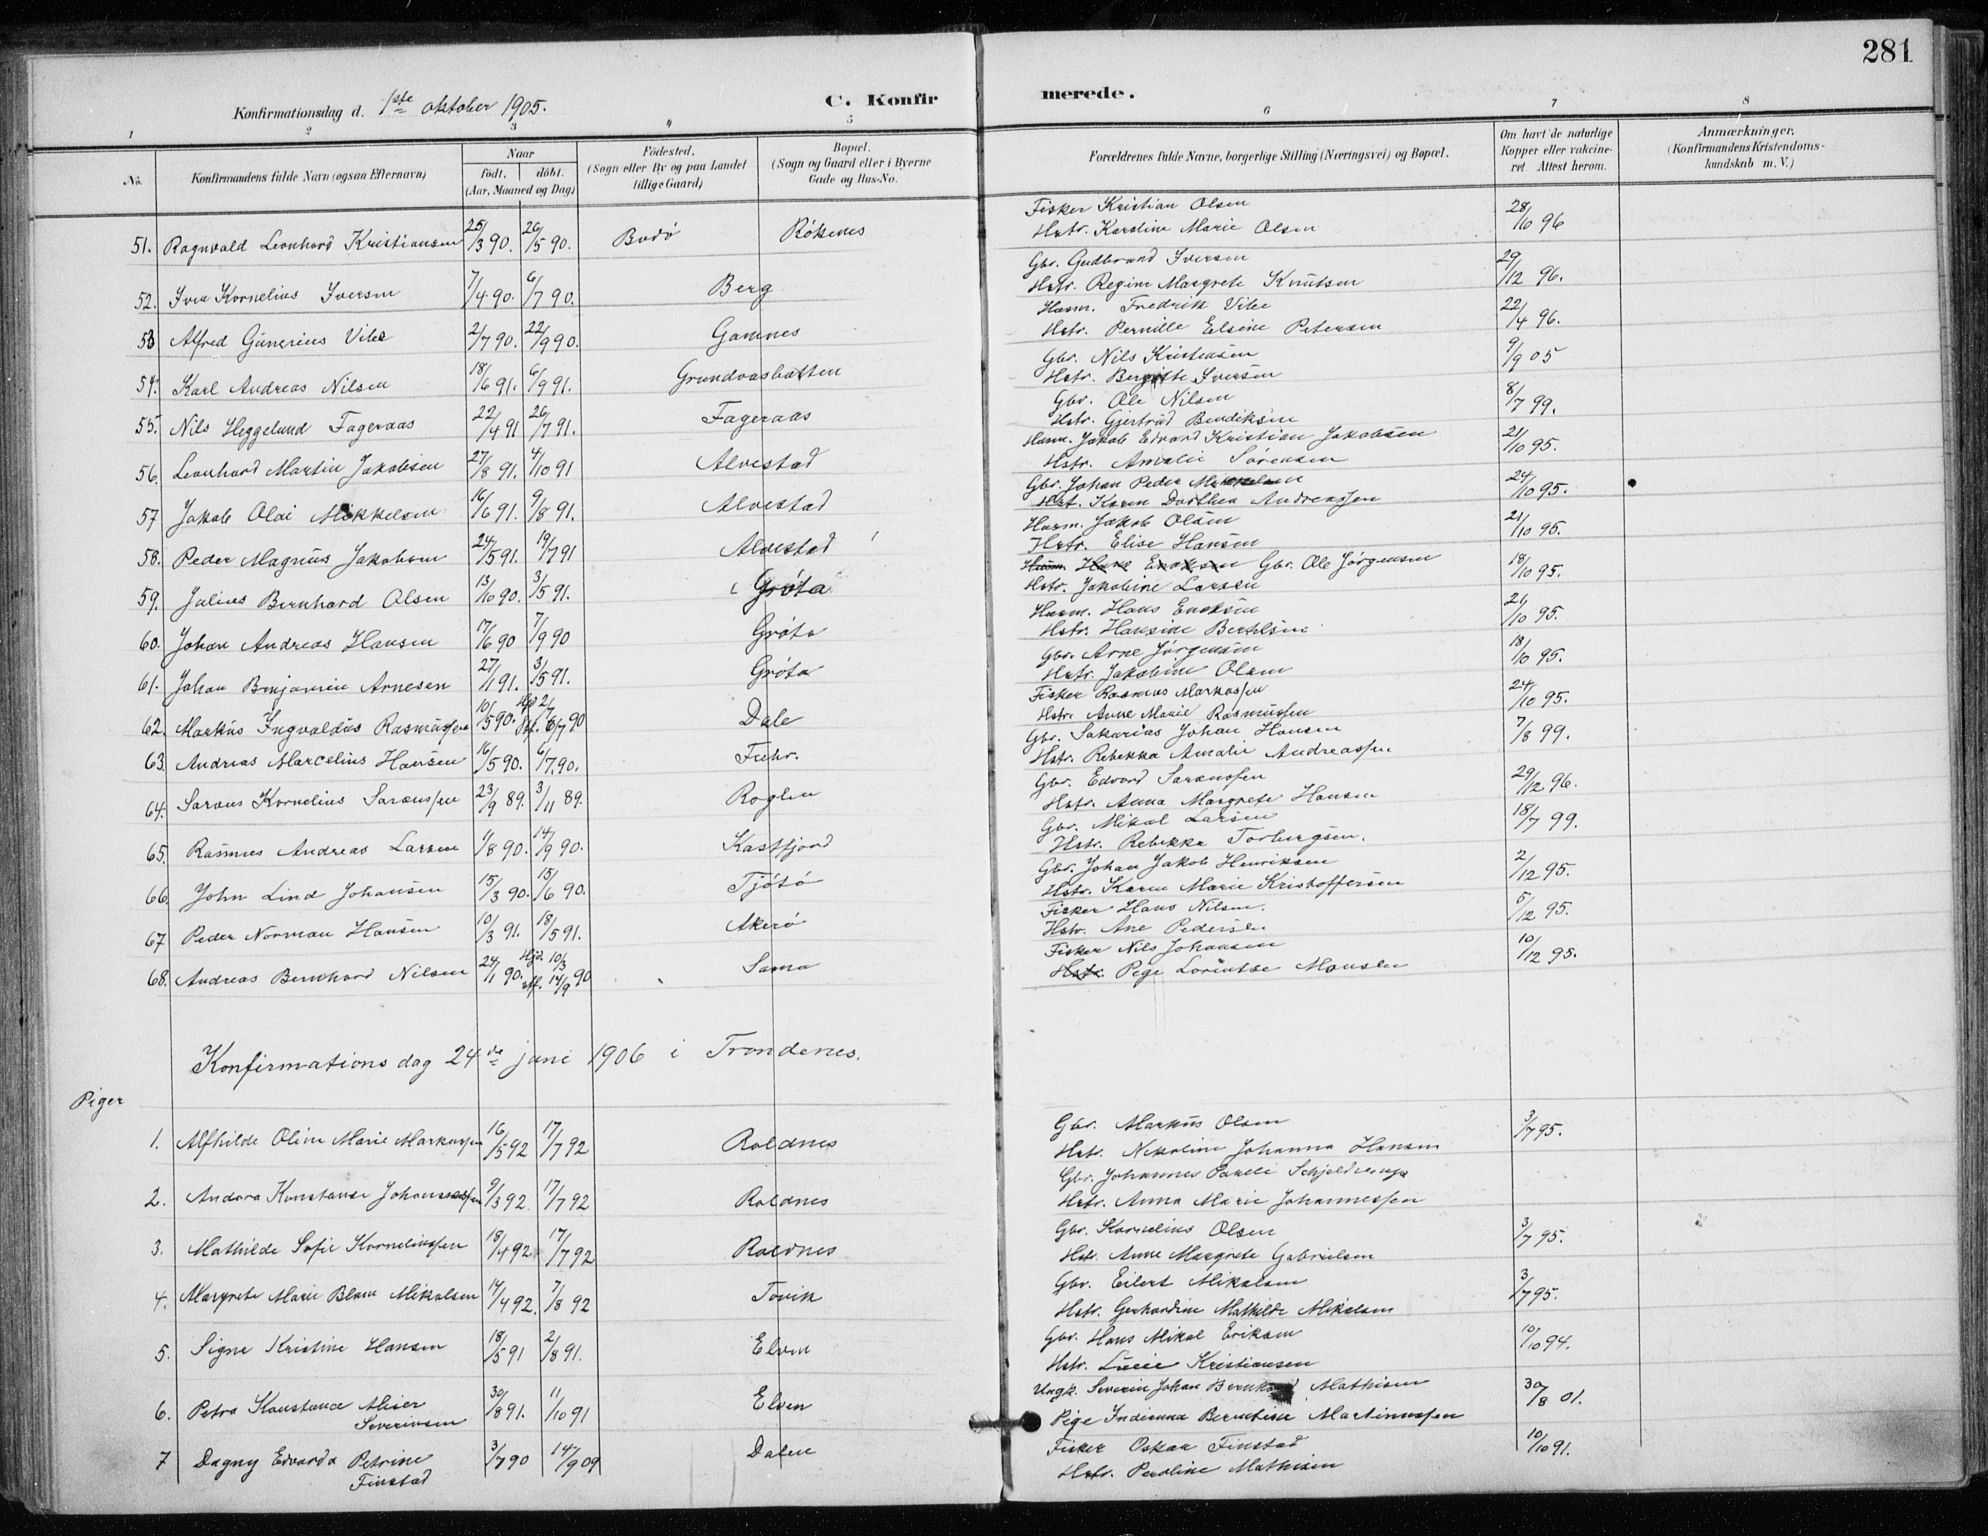 281
Konfirmationsdag d. 1ste oktober 1905. C. Konfirmerede.
1 2 3 4 5 6 7 8
No. Konfirmandens fulde Navn (ogsaa Efternavn) Naar født. døbt. (Aar, Maaned og Dag) Fødested. (Sogn eller By og paa Landet tillige Gaard) Bopæl. (Sogn og Gaard eller i Byerne Gade og Hus-No. Forældrenes fulde Navne, borgerlige Stilling (Næringsvei) og Bopæl. Om havt de naturlige Kopper eller vakcineret. Attest herom. Anmærkninger. (Konfirmandens Kristendomskundskab m. V.)
51. Ragnvald Leonhard Kristiansen 25/3 90. 26/5 90. Bodø Røkenes Fisker Kristian Olsen 28/10 96
Hstr. Karoline Marie Olsen
52. Iver Kornelius Iversen 7/4 90. 6/7 90. Berg Gbr. Gudbrand Iversen 29/12 96.
Hstr. Regine Margrete Knutsen
53 Alfred Gunerius Vibe 2/7 90. 22/9 90. Gamnes Husm. Fredrik Vibe 22/4 96.
Hstr. Pernille Elsine Petersen
54. Karl Andreas Nilsen 18/6 91. 6/9 91. Grundvasbatten Gbr. Nils Kristensen 9/9 05
Hstr. Bergitte Iversen
55. Nils Heggelund Fageraas 22/4 91 26/7 91. Fageraas Gbr. Ole Nilsen 8/7 99.
Hstr. Gjertrud Bendiksen
56. Leonhard Martin Jakobsen 27/8 91. 4/10 91 Alvestad Husm. Jakob Edvard Kristian Jakobsen 21/10 95.
Hstr. Amalie Sørensen
57 Jakob Olai Mikkelsen 16/6 91. 9/8 91. Alvestad Gbr. Johan Peder Mikkelsen 24/10 95.
Hst. Karen Dorthea Andreassen
58. Peder Magnus Jakobsen 24/5 91. 19/7 91 Alvestad Husm. Jakob Olsen 21/10 95.
Hstr. Elise Hansen
59. Julius Bernhard Olsen 13/10 90. 3/5 91. Grøta Husm. Hans Enoksen Gbr. Ole Jørgensen 18/10 95.
Hstr. Jakobine Larsen
60. Johan Andreas Hansen 17/6 90 7/9 90 Grøta Husm. Hans Enoksen 21/10 95.
Hstr. Hansine Bertelsen
61. Johan Benjamin Arnesen 27/1 91. 3/5 91. Grøta Gbr. Arne Jørgensen 18/10 95.
Hstr. Jakobine Olsen
62. Markus Ingvaldus Rasmussen 10/5 90. Hjd. 2/7 Stf. 6/7 90 Dale Fisker Rasmus Markussen 24/10 95.
Hstr. Anne Marie Rasmussen
63. Andreas Marcelius Hansen 16/5 90. 6/7 90. Fuhr. Gbr. Sakarias Johan Hansen 7/8 99.
Hstr. Rebekka Amalie Andreassen
64. Saraus Kornelius Sarænssen 23/9 89. 3/11 89. Roglen Gbr. Edvard Sarænssen 29/12 96.
Hstr. Anna Margrete Hansen
65. Rasmus Andreas Larsen 1/8 90. 14/9 90. Kastfjord Gbr. Mikal Larsen 18/7 99.
Hstr. Rebekka Torbergsen.
66. John Lind Johansen 15/3 90. 15/6 90. Tjøtø Gbr. Johan Jakob Henriksen 2/12 95.
Hstr. Karen Marie Kristoffersen
67 Peder Norman Hansen 10/3 91. 18/5 91. Akerø Fisker Hans Nilsen. 5/12 95.
Hstr. Ane Pedersen
68. Andreas Bernhard Nilsen 24/1 90. Hjd. 10/3 Stf. 14/9 90 Sama Fisker Nils Johansen 10/12 95.
Hstr. Pige Lorentse Monsen
Konfirmationsdag 24de juni 1906 i Trondenes.
Piger
1. Alfhilde Oline Marie Markussen 16/5 92 17/7 92 Roldnes Gbr. Markus Olsen 3/7 95.
Hstr. Nikoline Johanna Hansen
2. Andora Konstanse Johannessen 9/3 92. 17/7 92 Roldnes Gbr. Johannes Pareli Schjelderup
Hstr. Anna Marie Johannessen
3. Mathilde Sofie Korneliussen 18/4 92 17/7 92 Roldnes Gbr. Kornelius Olsen 3/7 95.
Hstr. Anne Margrete Gabrielsen
4. Margrete Marie Blom Mikalsen 14/4 92. 7/8 92 Tovik Gbr. Eilert Mikalsen 3/7 95.
Hstr. Gerhardine Mathilde Mikalsen
5. Signe Kristine Hansen 18/5 91 2/8 91. Elven Gbr. Hans Mikal Eriksen 10/10 94.
Hstr. Lucie Kristiansen
6. Petra Konstance Aliser Severinsen 30/8 91. 11/10 91 Elven Ungk. Severin Johan Bernhard Mathisen 30/8 01.
Pige Indianna Berntine Martinussen
7 Dagny Edvarda Petrine Finstad 3/7 90 14/9 09 Dalen Fisker Oskar Finstad 10/10 91.
Hstr. Peroline Mathisen